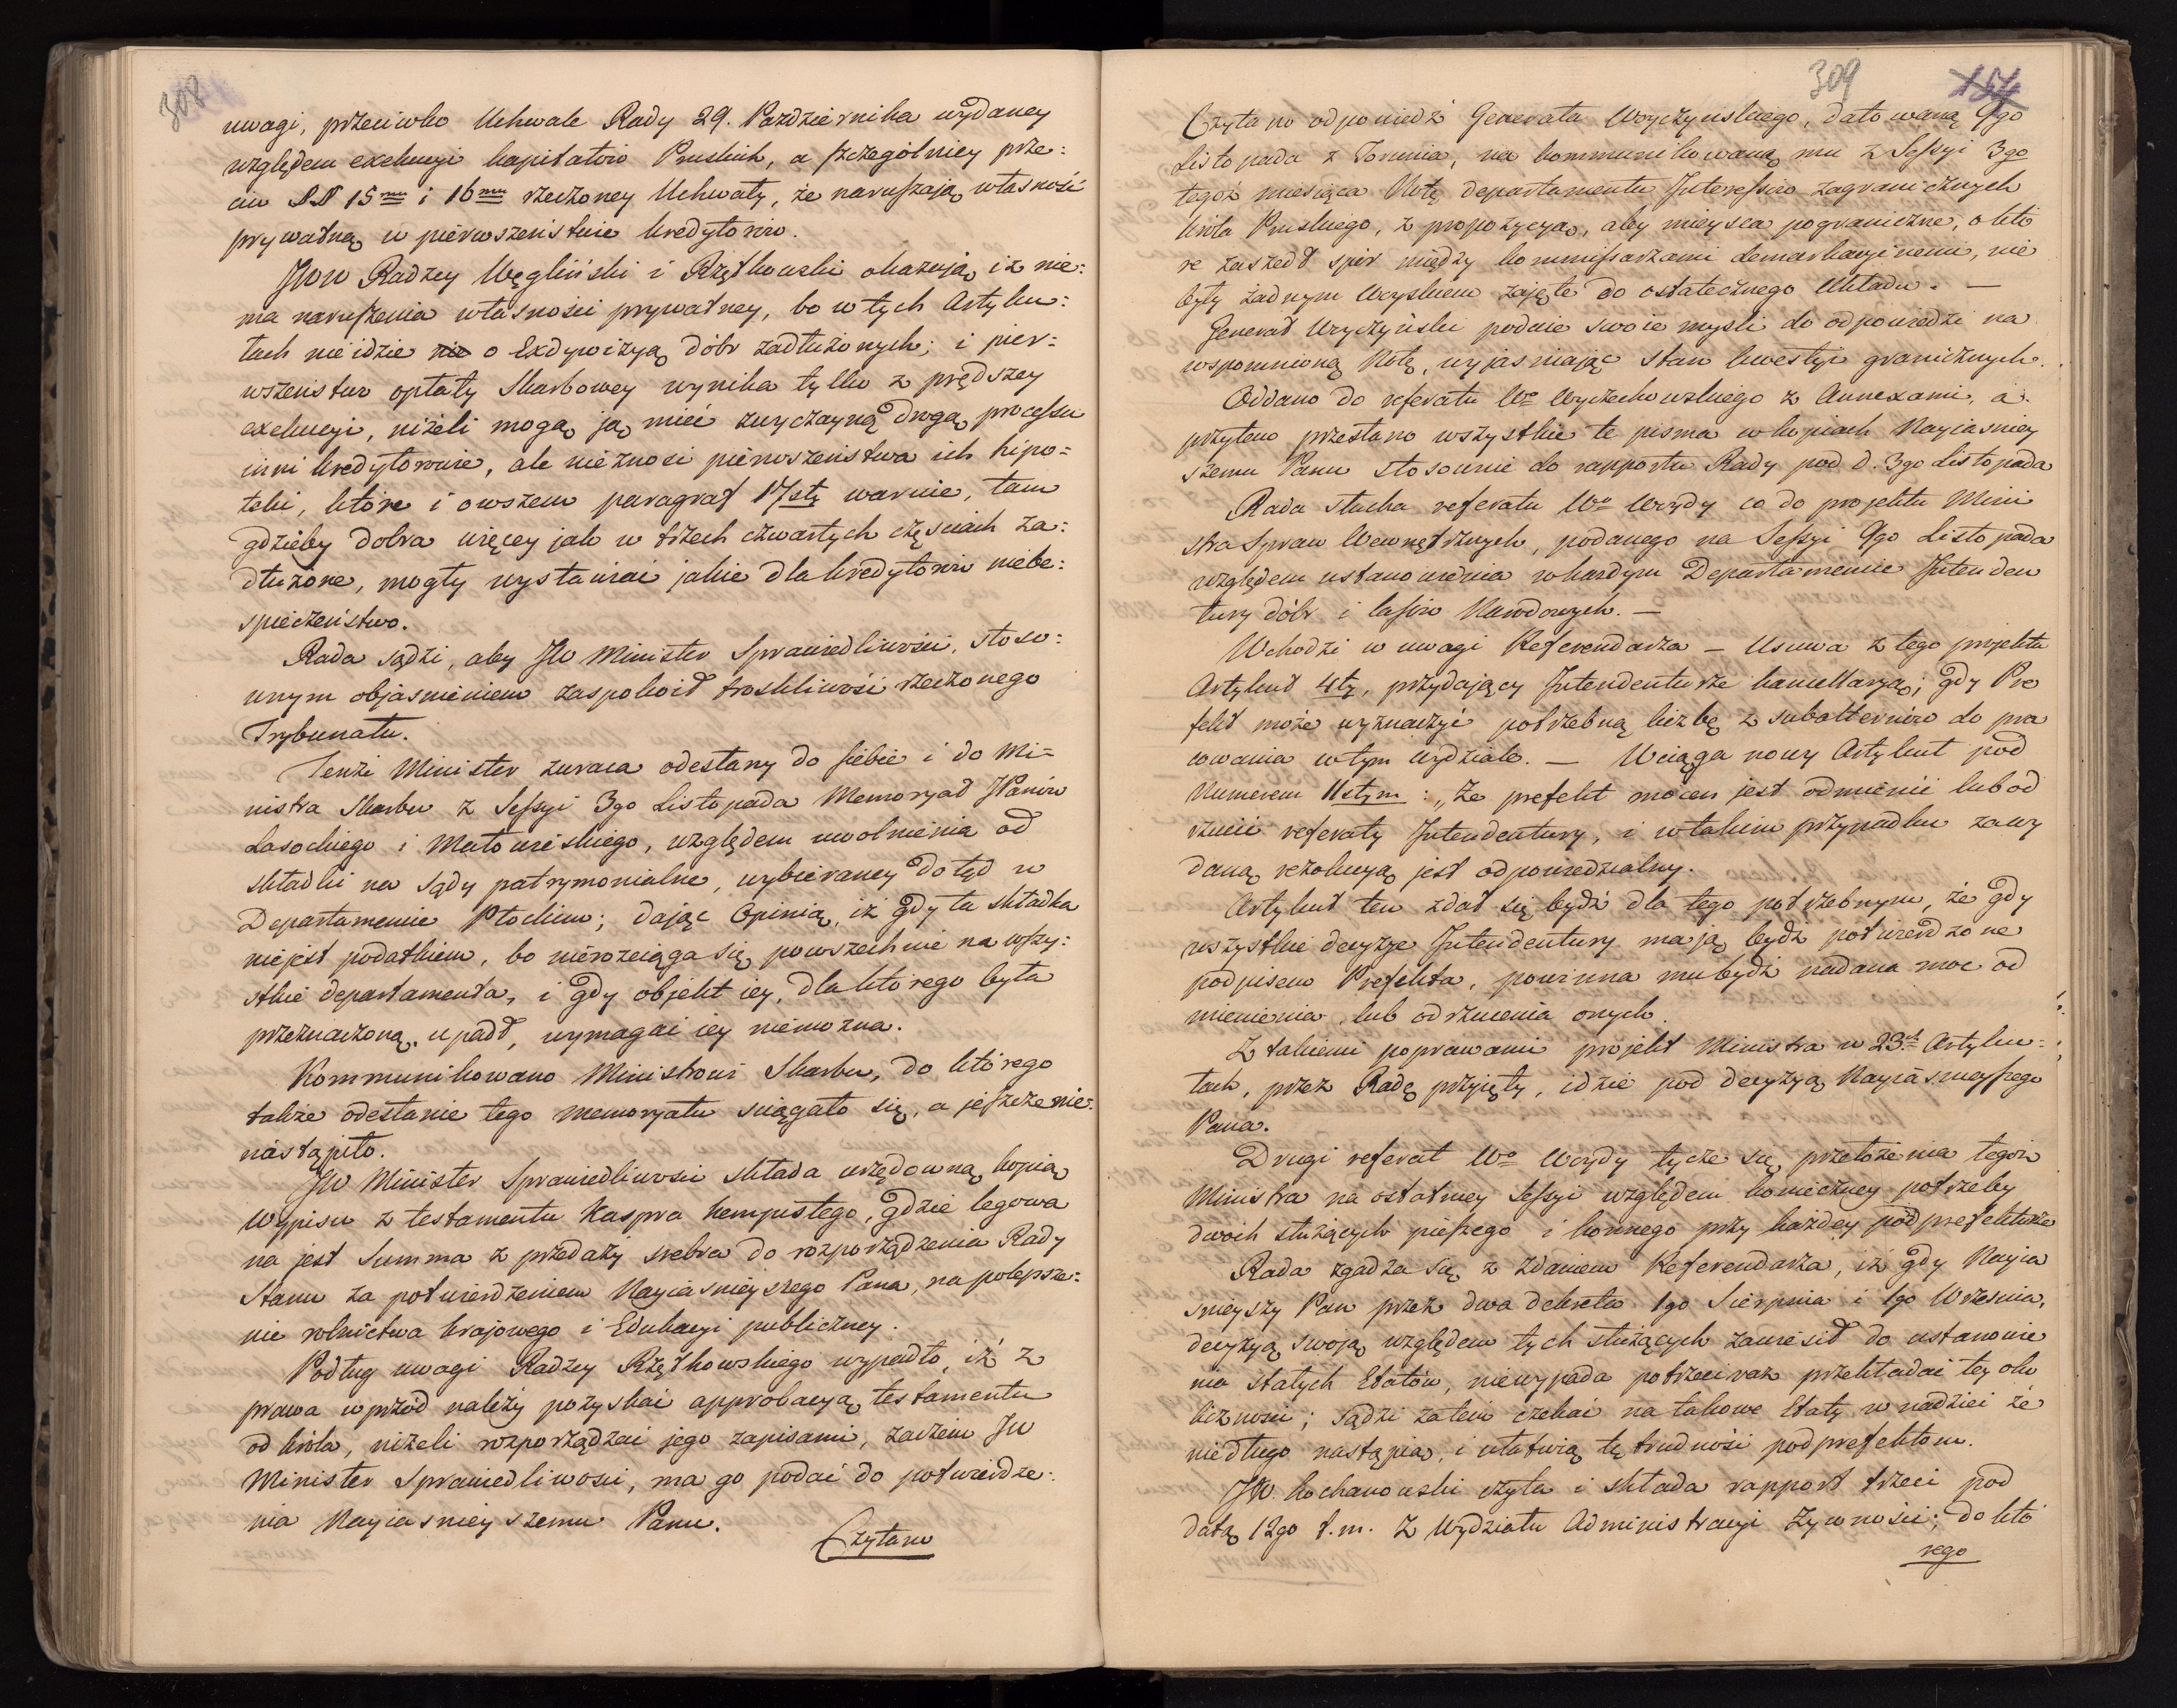 308
uwagi, przeciwko Uchwale Rady 29. Pazdziernika wydaney
względem exekucyi kapitałów Pruskich, a szczególniey prze:
ciw §§ 15mu i 16mu rzeczoney Uchwały, że naruszają własność
prywatną w pierwszeństwie kredytorów.
JWW Radzcy Węgliński i Rzętkowski okazują, iż nie:
ma naruszenia własności prywatney, bo w tych Artyku:
łach nie idzie nic o Exdywizyą dóbr zadłużonych; i pier:
wszeństwo opłaty Skarbowey wynika tylko z prędszey
exekucyi, niżeli mogą ją mieć zwyczayną drogą processu
inni kredytorowie, ale nieznosi pierwszeństwa ich hipo=
teki, które i owszem paragraf 17sty waruie, tam
gdzieby dobra więcey jak w trzech czwartych częściach za:
dłużone, mogły wystawiać jakie dla kredytorów niebe:
spieczeństwo.
Rada sądzi, aby JW Minister Sprawiedliwości, stoso:
wnym objaśnieniem zaspokoił troskliwość rzeczonego
Trybunału.
Tenże Minister zwraca odesłany do siebie i do Mi=
nistra Skarbu z Sessyi 3go Listopada Memoryał JPanów
Lasockiego i Matowieskiego, względem uwolnienia od
składki na sądy patrymonialne, wybieraney dotąd w
Departamencie Płockim; dając Opinią, iż gdy ta składka
niejest podatkiem, bo nierozciąga się powszechnie na wszy:
stkie departamenta, i gdy objekt iey, dla którego była
przeznaczoną, upadł, wymagać iey niemożna.
Kommunikowano Ministrowi Skarbu, do którego
także odesłanie tego memoryału ściągało się, a jeszcze nie:
nastąpiło.
JW Minister Sprawiedliwości składa urzędowną kopią
Wypisu z testamentu Kaspra Kempistego, gdzie legowa
na jest Summa z przedaży srebra do rozporządzenia Rady
Stanu za potwierdzeniem Nayiaśnieyszego Pana, na polepsze:
nie rolnictwa krajowego i Edukacyi publiczney.
Podług uwagi Radzcy Rzętkowskiego wypadło, iż z
prawa wprzód należy pozyskać approbacyą testamentu
od króla, niżeli rozporządzać jego zapisami, zaczem JW
Minister Sprawiedliwości, ma go podać do potwierdze:
nia Nayiaśnieyszemu Panu.
Czytano
309
154
Czytano odpowiedź Generała Woyczyńskiego, datowaną 9go
Listopada z Torunia, na kommunikowaną mu z Sessyi 3go
tegoż miesiąca Notę departamentu Interessów zagranicznych
króla Pruskiego, z propozycyą, aby mieysca pograniczne, o któ
re zaszedł spór między kommissarzami demarkacyinemi, nie
były żadnym Woyskiem zajęte do ostatecznego Układu. —
Generał Woyczyński podaie swoie myśli do odpowiedzi na
wspomnioną Notę, wyjaśniając stan kwestyi granicznych.
Oddano do referatu Wo Wyczechowskiego z Annexami, a
przytem przesłano wszystkie te pisma w kopiach Nayiaśniey
szemu Panu stosownie do rapportu Rady pod d. 3go Listopada
Rada słucha referatu Wo Woydy co do projektu Mini
stra Spraw Wewnętrznych, podanego na Sessyi 9go Listopada
względem ustanowienia w każdym Departamencie Intenden
tury dóbr i lasów Narodowych. —
Wchodzi w uwagi Referendarza — Usuwa z tego projektu
Artykuł 4ty, przydający Intendenturze kancellaryą; gdy Pre
fekt może wyznaczyć potrzebną liczbę z subalternów do pra
cowania w tym wydziale. — Wciąga nowy Artykuł pod
Numerem 11stym: „Że prefekt mocen jest odmienić lub od
rzucić referaty Intendentury, i w takim przypadku za wy
daną rezolucyą jest odpowiedzialny.
Artykuł ten zdał się bydź dla tego potrzebnym, że gdy
wszystkie decyzye Intendentury mają bydź potwierdzone
podpisem Prefekta, powinna mu bydź nadana moc od
mienienia, lub odrzucenia onych.
Z takiemi poprawami projekt Ministra w 23ch Artyku=
łach, przez Radę przyjęty, idzie pod decyzyą Nayiaśnieyszego
Pana.
Drugi referat Wo Woydy tycze się przełożenia tegoż
Ministra na ostatniey Sessyi względem konieczney potrzeby
dwóch służących pieszego i konnego przy każdey podprefekturze
Rada zgadza się z zdaniem Referendarza, iż gdy Nayia
śnieyszy Pan przez dwa dekreta 1go Sierpnia i 1go Września,
decyzyą swoją względem tych służących zawiesił do ustanowie
nia stałych Etatów, niewypada potrzeciraz przekładać tey oko
liczności; sądzi zatem czekać na takowe Etaty w nadziei że
niedługo nastąpią, i ułatwią tę trudność podprefektom.
JW. Kochanowski czyta i składa rapport trzeci pod
datą 12go t.m. z Wydziału Administracyi Żywności; do któ
rego